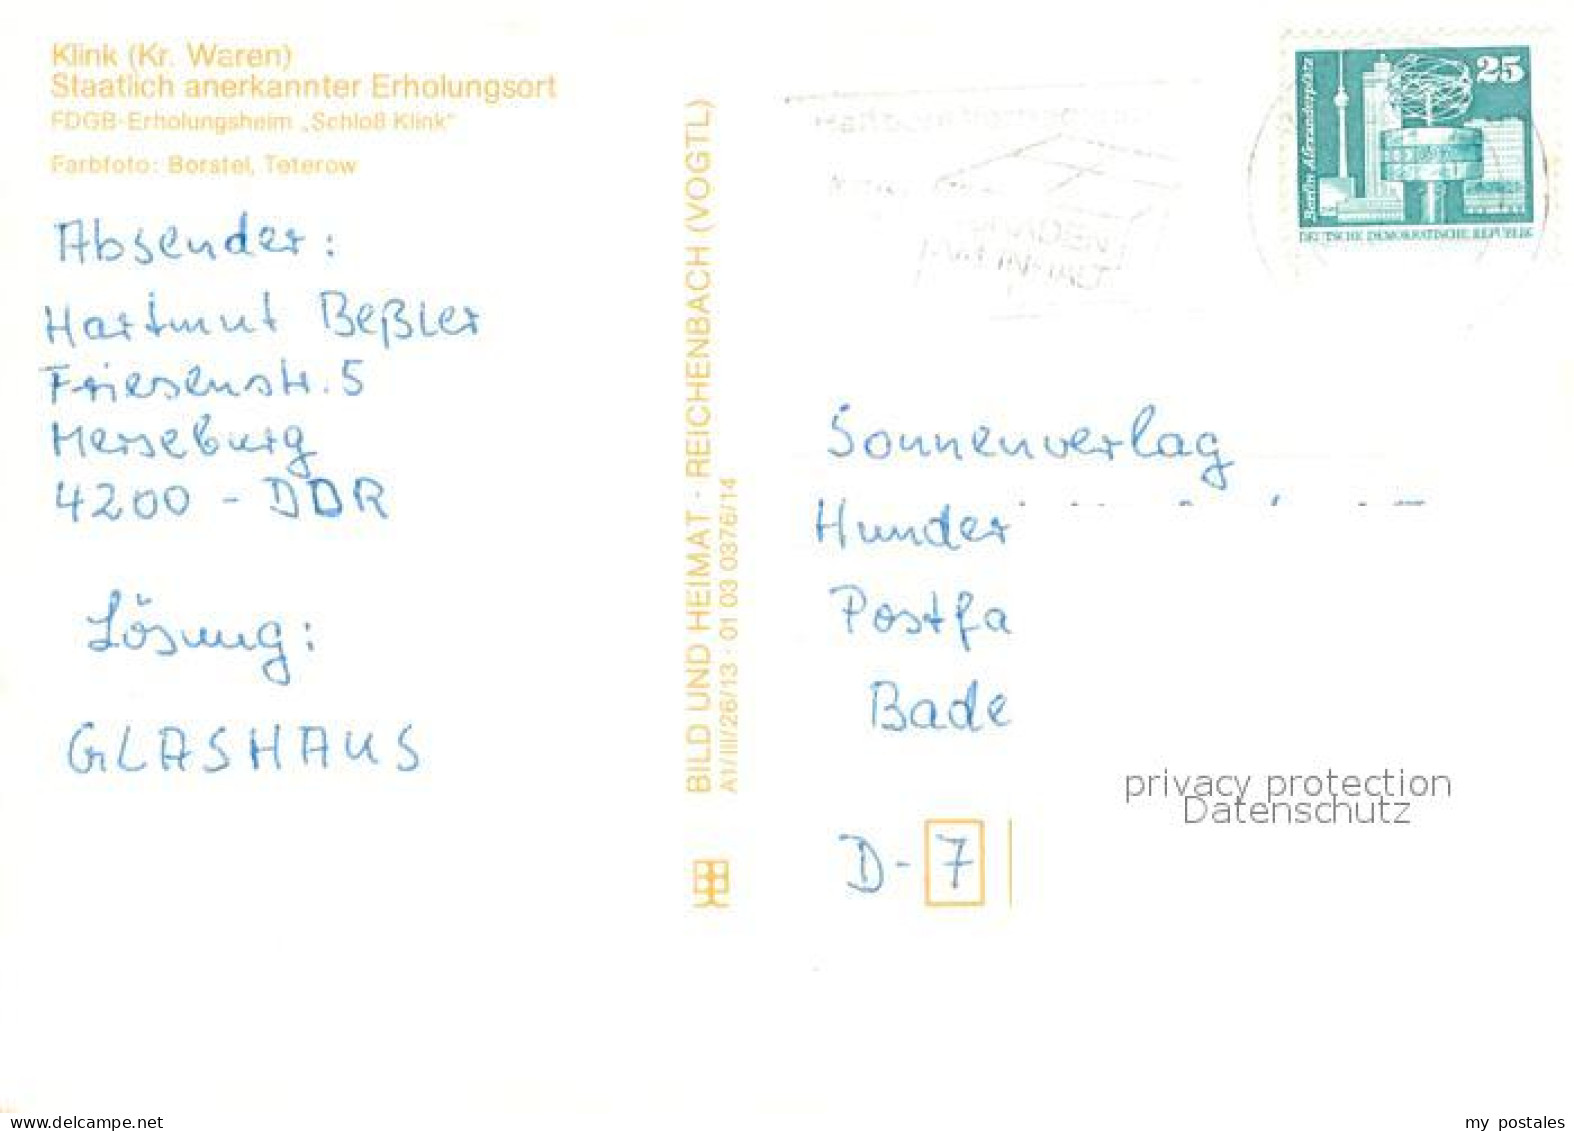 Klink (Kr. Waren)
Staatlich anerkannter Erholungsort
FDGB-Erholungsheim „Schloß Klink"
Farbfoto: Borstel, Teterow
Absender:
Hartmut Beßler
Friesenstr. 5
Merseburg
4200 - DDR
Lösung:
GLASHAUS
BILD UND HEIMAT · REICHENBACH (VOGTL)
A1/III/26/13 · 01 03 0376/14
25
Berlin Alexanderplatz
DEUTSCHE DEMOKRATISCHE REPUBLIK
Sonnenverlag
Hunder
Postfa
Bade
D - 7
privacy protection
Datenschutz
www.delcampe.net
my postales